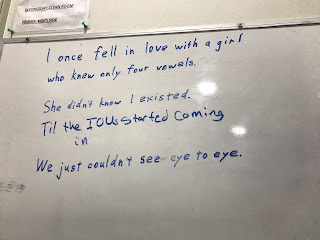 WEDNESDAY: CLEAN ROOM
I once fell in love with a girl
who knew only four vowels.
She didn't know I existed.
Til the IOUs started coming
in
We just couldn't see eye to eye.